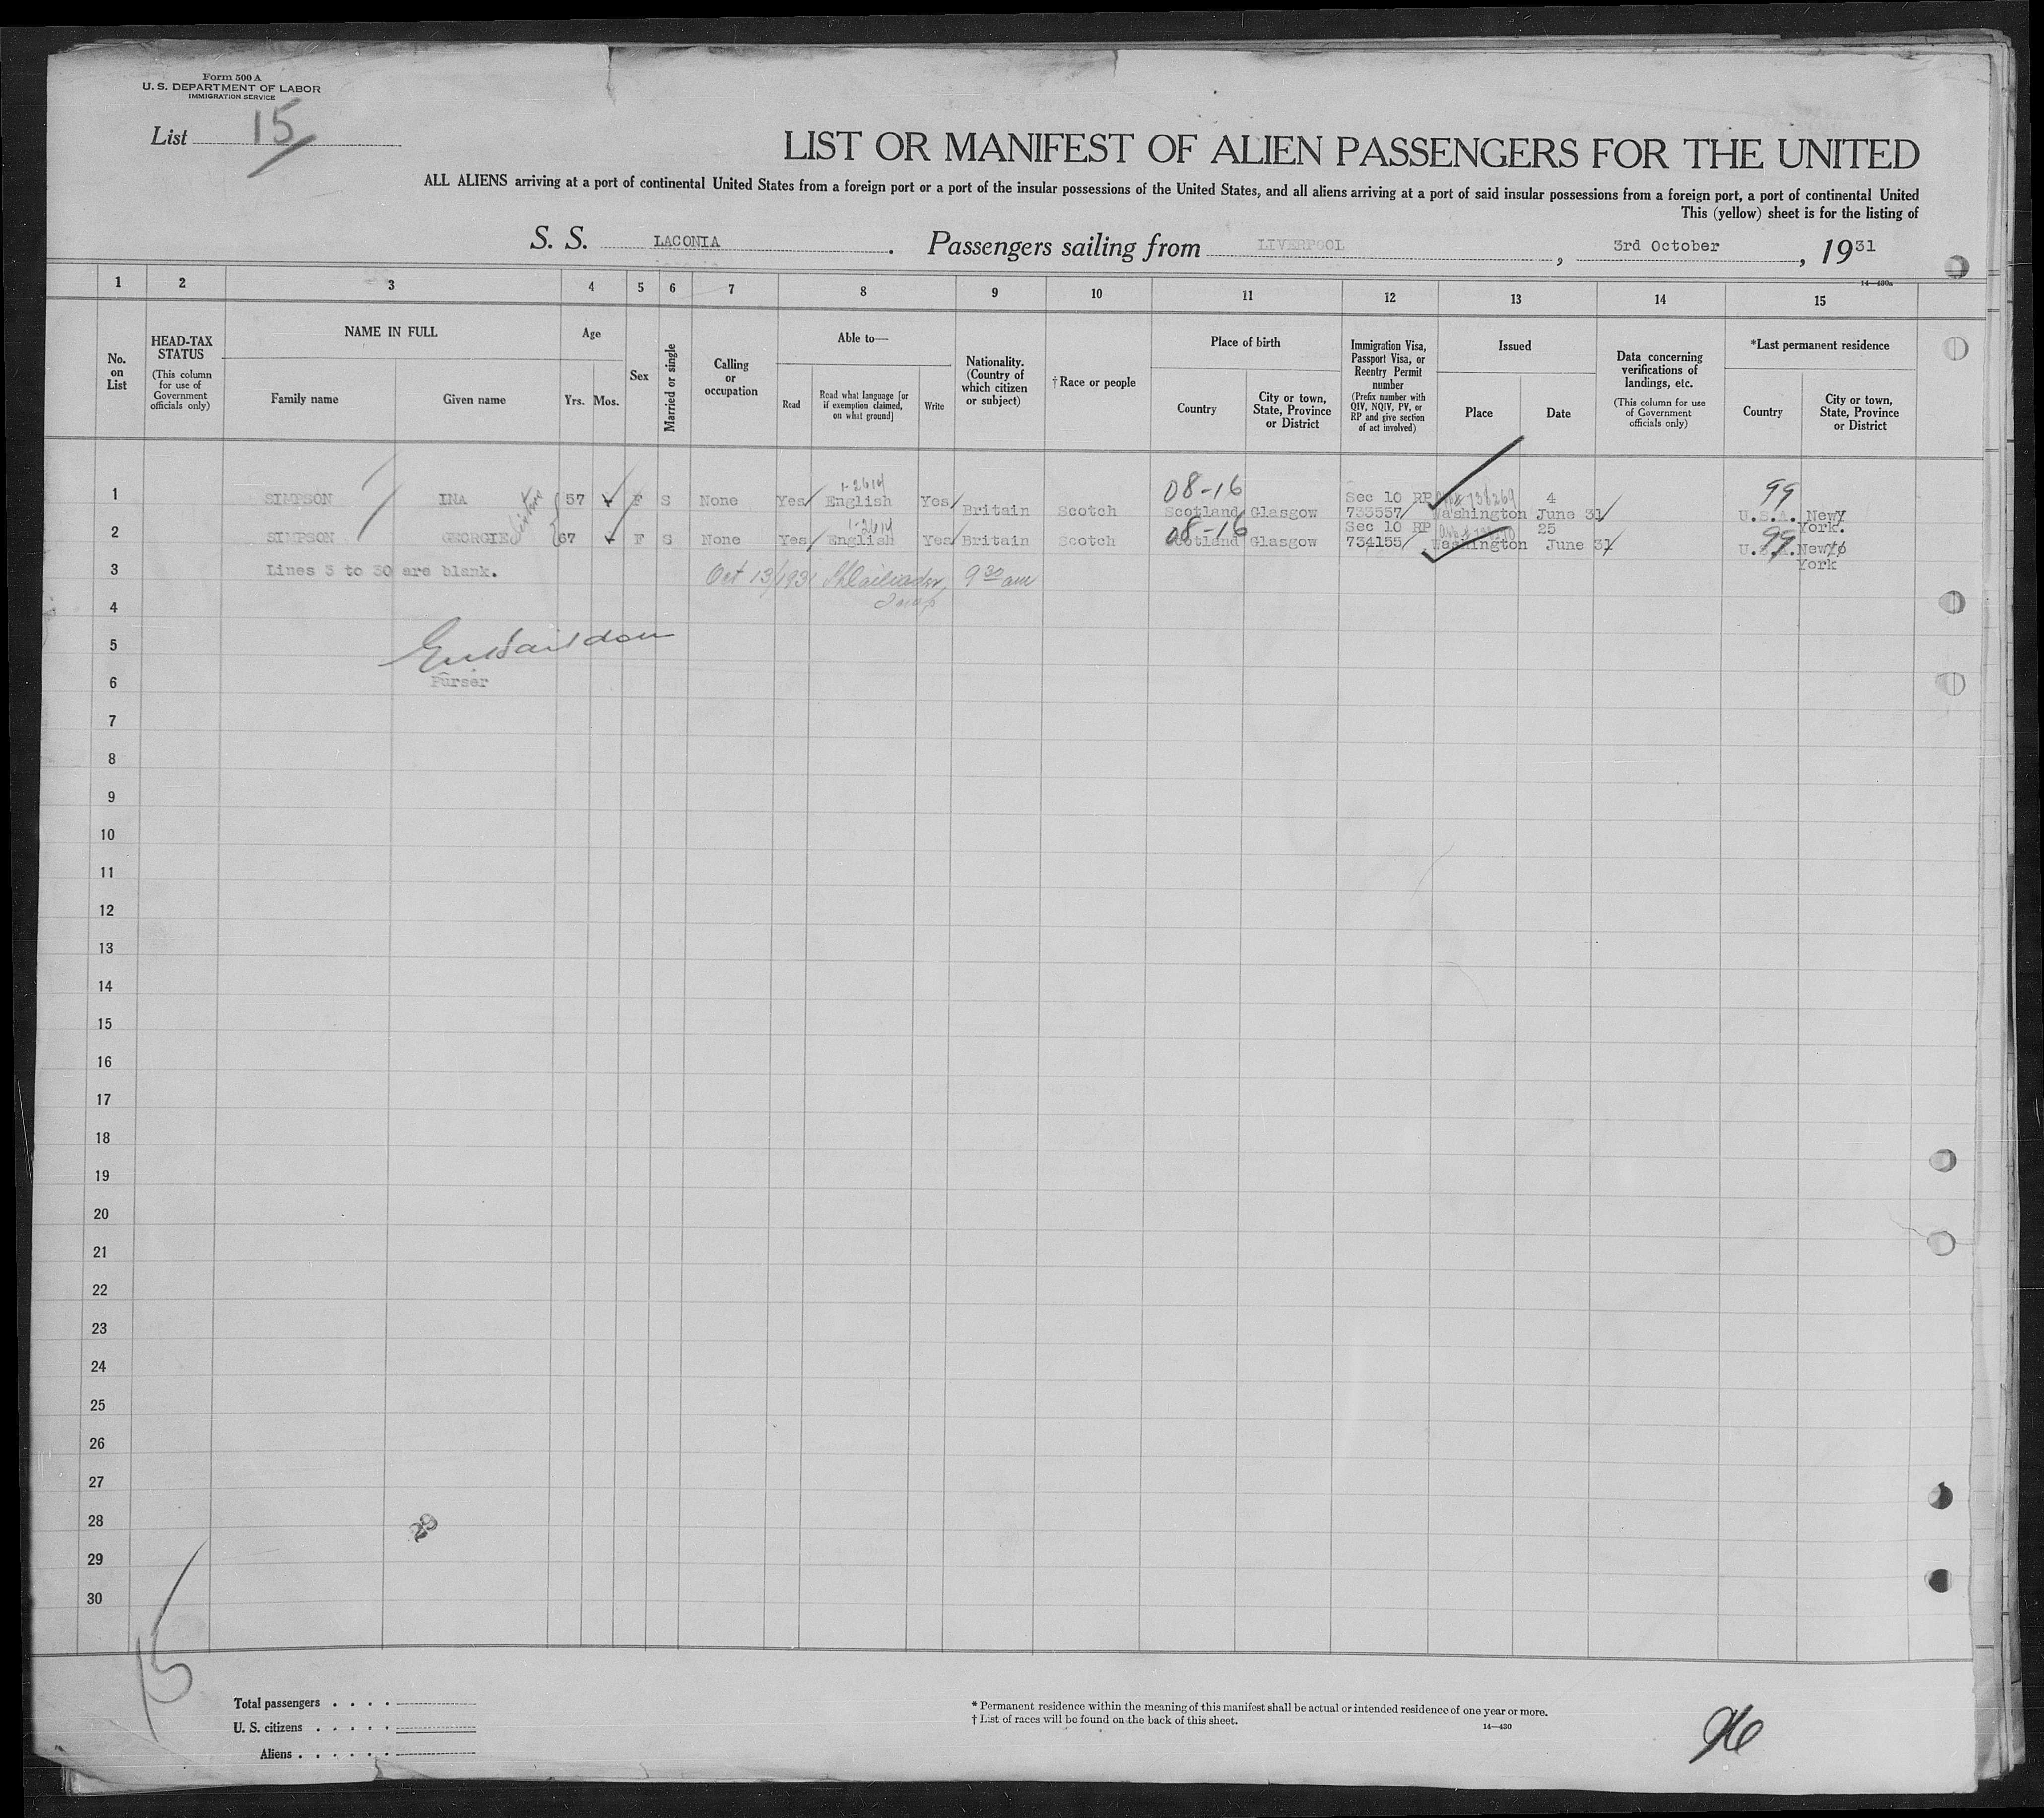 Form 500 A
U. S. DEPARTMENT OF LABOR
IMMIGRATION SERVICE
List 15
LIST OR MANIFEST OF ALIEN PASSENGERS FOR THE UNITED
ALL ALIENS arriving at a port of continental United States from a foreign port or a port of the insular possessions of the United States, and all aliens arriving at a port of said insular possessions from a foreign port, a port of continental United
This (yellow) sheet is for the listing of
S. S. LACONIA . Passengers sailing from LIVERPOOL , 3rd October , 19 31
14—430a
1 2 3 4 5 6 7 8 9 10 11 12 13 14 15
No. on List
HEAD-TAX STATUS
(This column for use of Government officials only)
NAME IN FULL
Family name
Given name
Age
Yrs. Mos.
Sex
Married or single
Calling or occupation
Able to—
Read
Read what language [or if exemption claimed, on what ground]
Write
Nationality. (Country of which citizen or subject)
† Race or people
Place of birth
Country
City or town, State, Province or District
Immigration Visa, Passport Visa, or Reentry Permit number
(Prefix number with QIV, NQIV, PV, or RP and give section of act involved)
Issued
Place
Date
Data concerning verifications of landings, etc.
(This column for use of Government officials only)
*Last permanent residence
Country
City or town, State, Province or District
1-2614 08-16 99
1 SIMPSON INA 57 F S None Yes English Yes Britain Scotch Scotland Glasgow Sec 10 RP 733557 Washington 4 June 31 U.S.A. New York.
Sisters
1-2614 08-16 99
2 SIMPSON GEORGIE 67 F S None Yes English Yes Britain Scotch Scotland Glasgow Sec 10 RP 734155 Washington 25 June 31 U.S.A. New York
3 Lines 3 to 30 are blank. Oct 13/1931 9 30 am
4
5
6 Purser
7
8
9
10
11
12
13
14
15
16
17
18
19
20
21
22
23
24
25
26
27
28
29
30
15
Total passengers
U. S. citizens
Aliens
* Permanent residence within the meaning of this manifest shall be actual or intended residence of one year or more.
† List of races will be found on the back of this sheet.
14—430
96